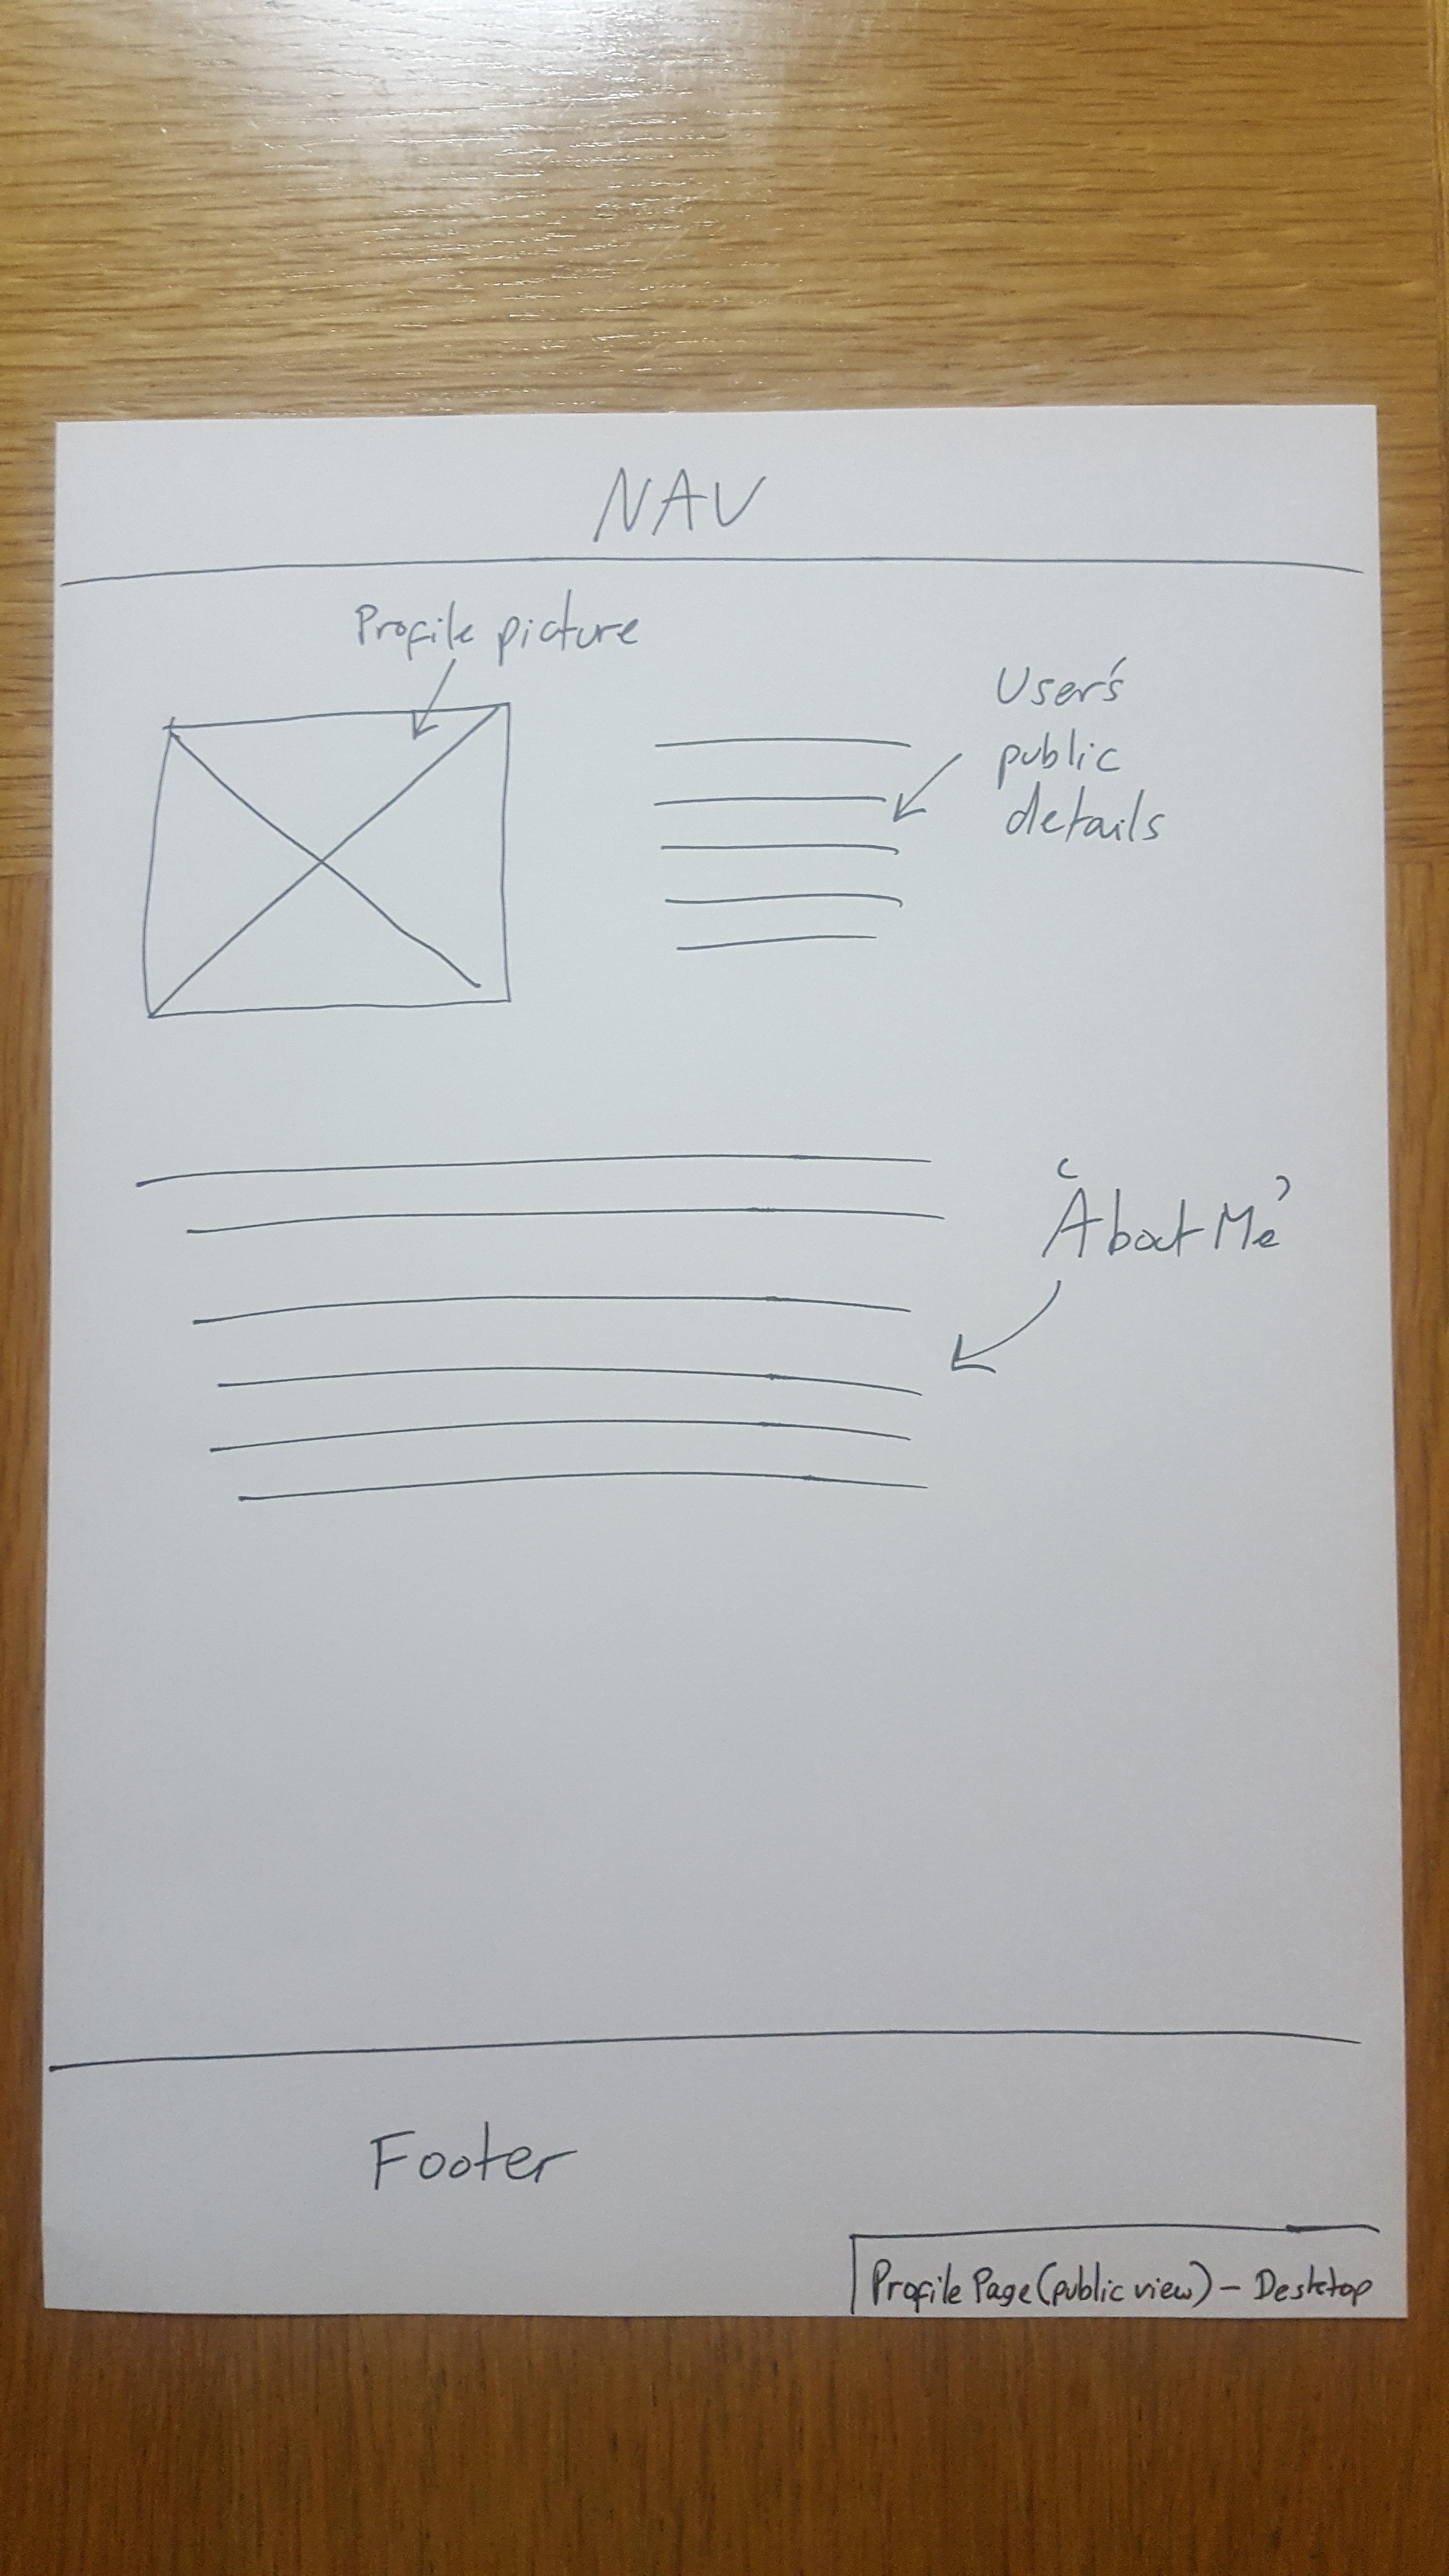 NAV
Profile picture
User's
public
details
'About Me'
Footer
Profile Page (public view) - Desktop